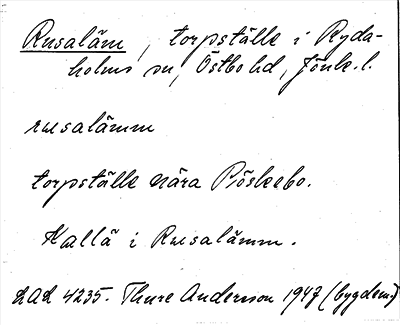 Rusaläm, torpställe i Ryda-
holms sn, Östbo hd, Jönk.l.
rusalämm
torpställe nära Pöskebo.
Kallä i Rusalämm.
LAL 4235. Thure Andersson 1947 (bygdem)